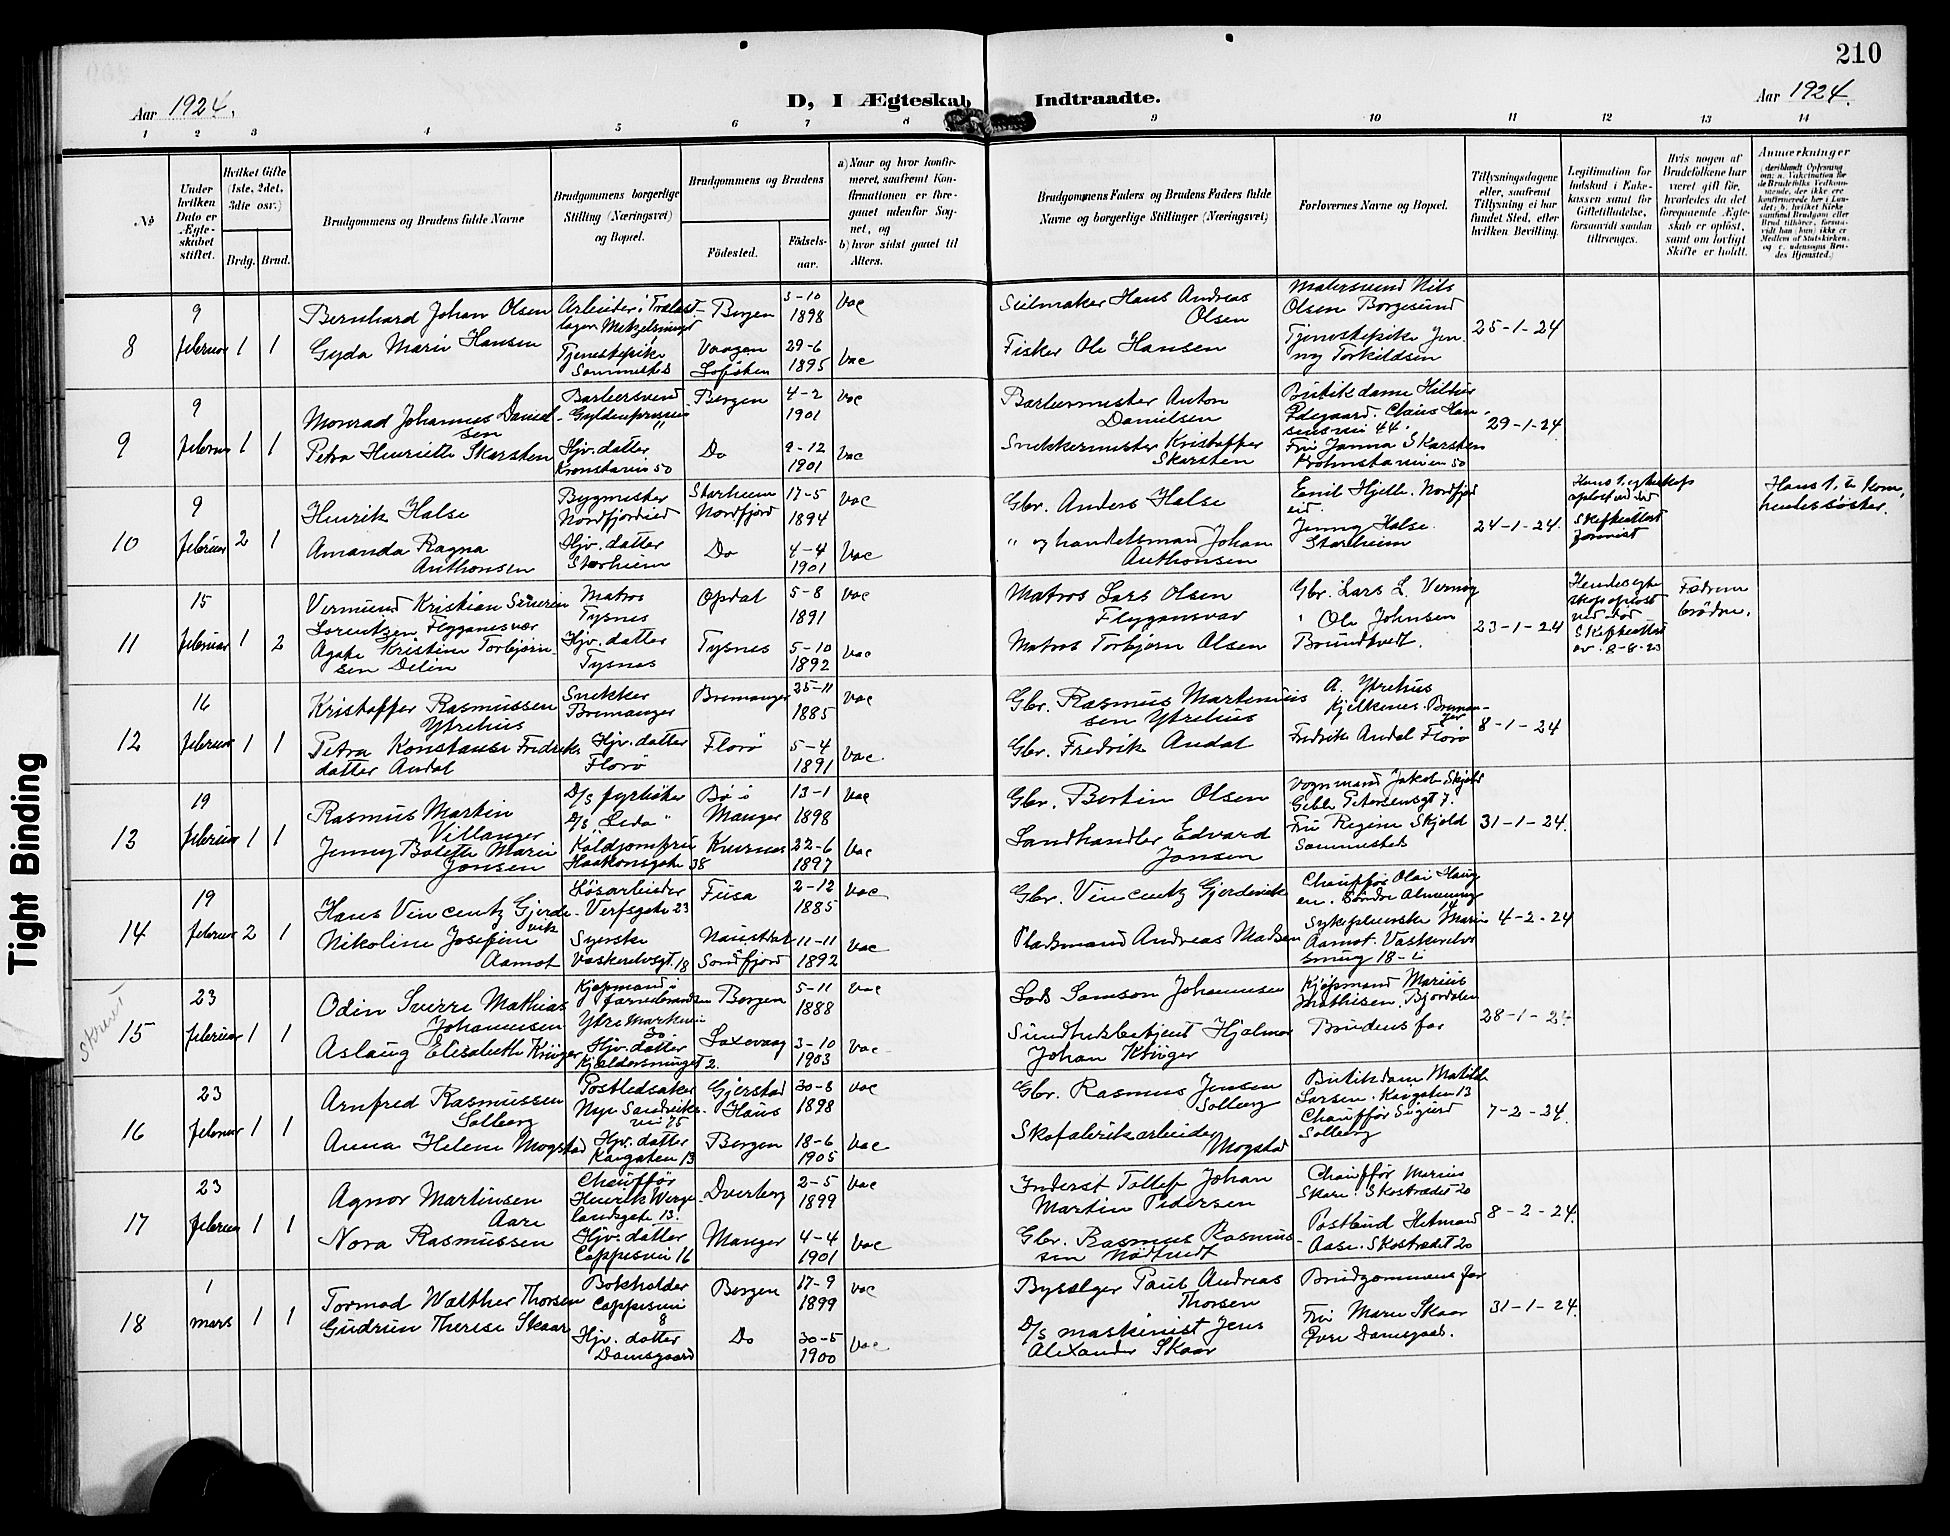 210
Aar 1924.
D, I Ægteskab Indtraadte.
Aar 1924.
1 2 3 4 5 6 7 8 9 10 11 12 13 14
No
Under hvilken Dato er Ægteskabet stiftet.
Hvilket Gifte (1ste, 2det, 3die osv.)
Brdg. Brud.
Brudgommens og Brudens fulde Navne
Brudgommens borgerlige Stilling (Næringsvei) og Bopæl.
Brudgommens og Brudens
Fødested.
Fødselsaar.
a) Naar og hvor konfirmeret, saafremt Konfirmationen er foregaaet udenfor Sognet, og
b) hvor sidst gaaet til Alters.
Brudgommens Faders og Brudens Faders fulde Navne og borgerlige Stillinger (Næringsvei)
Forlovernes Navne og Bopæl.
Tillysningsdagene eller, saafremt Tillysning ei har fundet Sted, efter hvilken Bevilling.
Legitimation for Indskud i Enkekassen samt for Giftetilladelse, forsaavidt saadan tiltrænges.
Hvis nogen af Brudefolkene har været gift før, hvorledes da det foregaaende Ægteskab er opløst, samt om lovligt Skifte er holdt.
Anmærkninger
8
9 februar 1 1
Bernhard Johan Olsen
Gyda Marie Hansen
Tjenestepike
Sammesteds
Bergen
3-10
1898
Vaagen
29-6
1895
vac
vac
Seilmaker Hans Andreas
Olsen
Fisker Ole Hansen
Olsen Borgesund
Tjenestepike Jenny Torkildsen
25-1-24
9
9 februar 1 1
Monrad Johannes Danielsen
Petra Henriette Skarsten
Barbersvend
Hjv. datter
Kronstavei 50
Bergen
4-2
1901
Do
9-12
1901
vac
vac
Barbermester Anton
Danielsen
Snekkermester Kristoffer
Skarsten
Butikdame
Fru Janna Skarsten
29-1-24
10
9 februar 2 1
Henrik Halse
Amanda Ragna
Anthonsen
Bygmester
Nordfjordeid
Hjv. datter
Starheim
Starheim
Nordfjord
17-5
1894
Do
4-4
1901
vac
vac
Gbr. Anders Halse
" og handelsmand Johan
Anthonsen
Emil Hjelle. Nordfjordeid.
Jenny Halse.
Starheim
24-1-24.
11
15 februar 1 2
Vermund Kristian Severin
Lorentzen Flyganesvær
Agate Kristine Torbjørnsen Delin
Matros
Tysnes
Hjv. datter
Tysnes
Opdal
5-8
1891
Tysnes
5-10
1892
vac
vac
Matros Lars Olsen
Flygansvær
Matros Torbjørn Olsen
Gbr. Lars L. Vernøy
" Ole Johnsen
Brundtvedt.
23-1-24
8-8-23
12
16 februar 1 1
Kristoffer Rasmussen
Ytrehus
Petra Konstanse Fredriksdatter Andal
Snekker
Bremanger
Hjv. datter
Florø
Bremanger
25-11
1885
Florø
5-4
1891
vac
vac
Gbr. Rasmus Marteniussen Ytrehus
Gbr. Fredrik Andal
A. Ytrehus
Fredrik Andal Florø
8-1-24
13
19 februar 1 1
Rasmus Martin
Villanger
Jenny Bolette Marie
Jonsen
D/s fyrbøter
D/s "Leda"
Koldjomfru
Haakonsgate 38
Bø i
Manger
13-1
1898
22-6
1897
vac
vac
Gbr. Bertin Olsen
Landhandler Edvard
Jonsen
Fru Regine Skjold
Sammesteds
31-1-24.
14
19 februar 2 1
Hans Vincentz Gjerdevik
Nikoline Josefine
Aamot
Løsarbeider
Verfsgate 23
Syerske
Vaskerelvsgt. 18
Fusa
2-12
1885
Naustdal
Søndfjord
11-11
1892
vac
vac
Gbr. Vincentz Gjerdevik
Pladsmand Andreas Madsen
Sykepleierske Marie
Aamot. Vaskerelvsmug 18-i
4-2-24
15
23 februar 1 1
Odin Sverre Mathias
Johannesen
Aslaug Elisabeth Krüger
Kjøpmand i
Ytre Markevei
30
Hjv. datter
Kjeldersmuget 2.
Bergen
5-11
1888
Laxevaag
3-10
1903
vac
vac
Lods Samson Johannesen
Sundhetsbetjent Hjalmar
Johan Krüger
Kjøpmand Marius
Mathisen. Bjordalen
Brudens far
28-1-24
16
23 februar 1 1
Arnfred Rasmussen
Solberg
Anna Helene Mogstad
Postledsaker
Nye Sandviksvei 75
Hjv. datter
Kongaten 13
Gjerstad
Haus
30-8
1898
Bergen
18-6
1905
vac
vac
Gbr. Rasmus Jensen
Solberg
Skofabrikarbeider
Mogstad
Butikdame Matilde
Larsen. Kongaten 13
Chauffør Sigurd
Solberg
7-2-24.
17
23 februar 1 1
Agnor Martinsen
Aare
Nora Rasmussen
Chauffør
Henrik Wergelandsgate 13.
Hjv. datter
Cappesvei 16
Dverberg
2-5
1899
Manger
4-4
1901
vac
vac
Inderst Tollef Johan
Martin Pedersen
Gbr. Rasmus Rasmussen
Chauffør Marius
Skare. Skostrædet 20
Postbud Hitmand
Aase. Skostrædet 20
8-2-24.
18
1 mars 1 1
Tormod Walther Thorsen
Gudrun Therese Skaar
Bokholder
Cappesvei
8
Hjv. datter
Damsgaard
Bergen
17-9
1899
Do
30-5
1900
vac
vac
Byselger Paul Andreas
Thorsen
D/s maskinist Jens
Alexander Skaar
Brudgommens far
Fru Marie Skaar
Øvre Damsgaard.
31-1-24.
Tight Binding